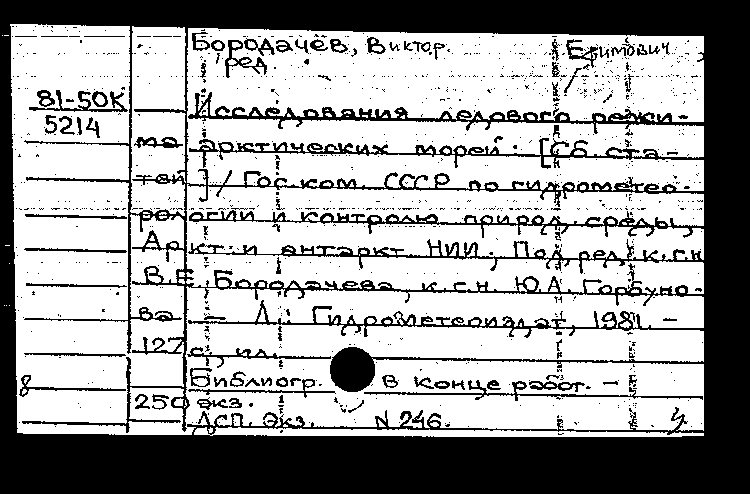 Бородачёв, Виктор Ефимович
ред.
81-50К
5214
Исследования ледового режи-
ма арктических морей : [Сб. ста-
тей] / Гос. ком. СССР по гидрометео-
рологии и контролю природ. среды,
Аркт. и антаркт. НИИ ; Под ред. к.г.н.
В.Е. Бородачева, к.г.н. Ю.А. Горбуно-
ва. – Л. : Гидрометеоиздат, 1981. –
127 с., ил.
Библиогр. в конце работ. –
8
250 экз.
ДСП. Экз. N 246.